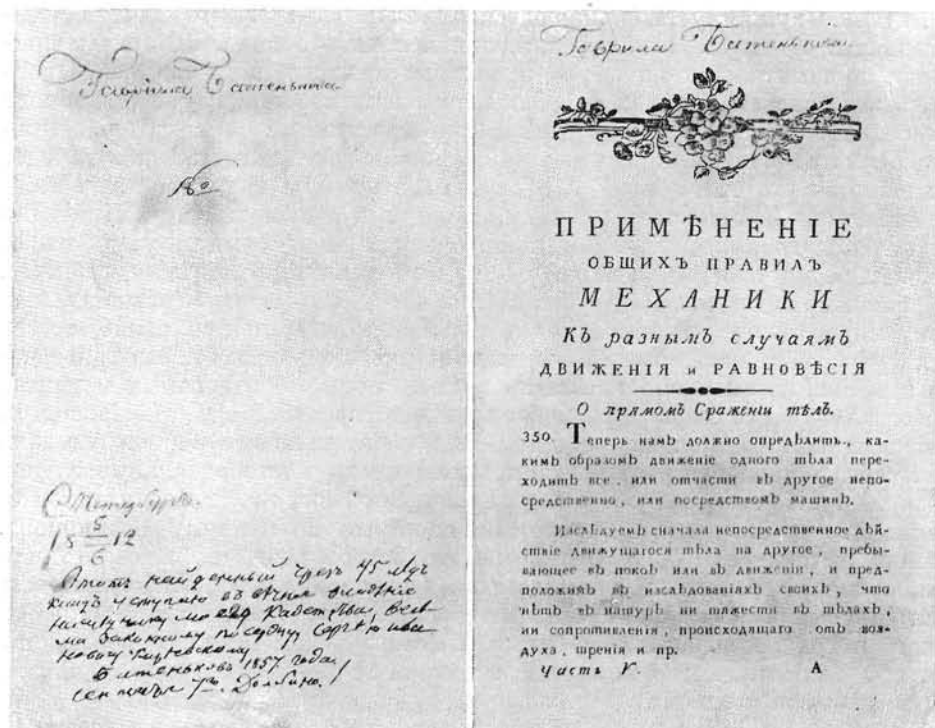 Гаврила Батеньковъ
№
С Петербургъ.
18 5/6 12
найденный чрезъ 45 лѣтъ
уступаю въ вѣчное

Батеньковъ 1857 года
7го. Долбино.
Гаврила Батеньковъ
ПРИМѢНЕНІЕ
ОБЩИХЪ ПРАВИЛЪ
МЕХАНИКИ
Къ разнымЪ случаямЪ
ДВИЖЕНІЯ и РАВНОВѢСІЯ
О прямомЪ Сраженіи тѣлЪ.
350. Теперь намЪ должно опредѣлить, ка-
кимЪ образомЪ движеніе одного тѣла пере-
ходитЪ все, или отчасти вЪ другое непо-
средственно, или посредствомЪ машинЪ.
ИзслѣдуемЪ сначала непосредственное дѣй-
ствіе движущагося тѣла на другое, пребы-
вающее вЪ покоѣ или вЪ движеніи, и пред-
положимЪ вЪ изслѣдованіяхЪ своихЪ, что
нѣтЪ вЪ натурѣ ни тяжести вЪ тѣлахЪ,
ни сопротивленія, происходящаго отЪ воз-
духа, тренія и пр.
Часть V. А